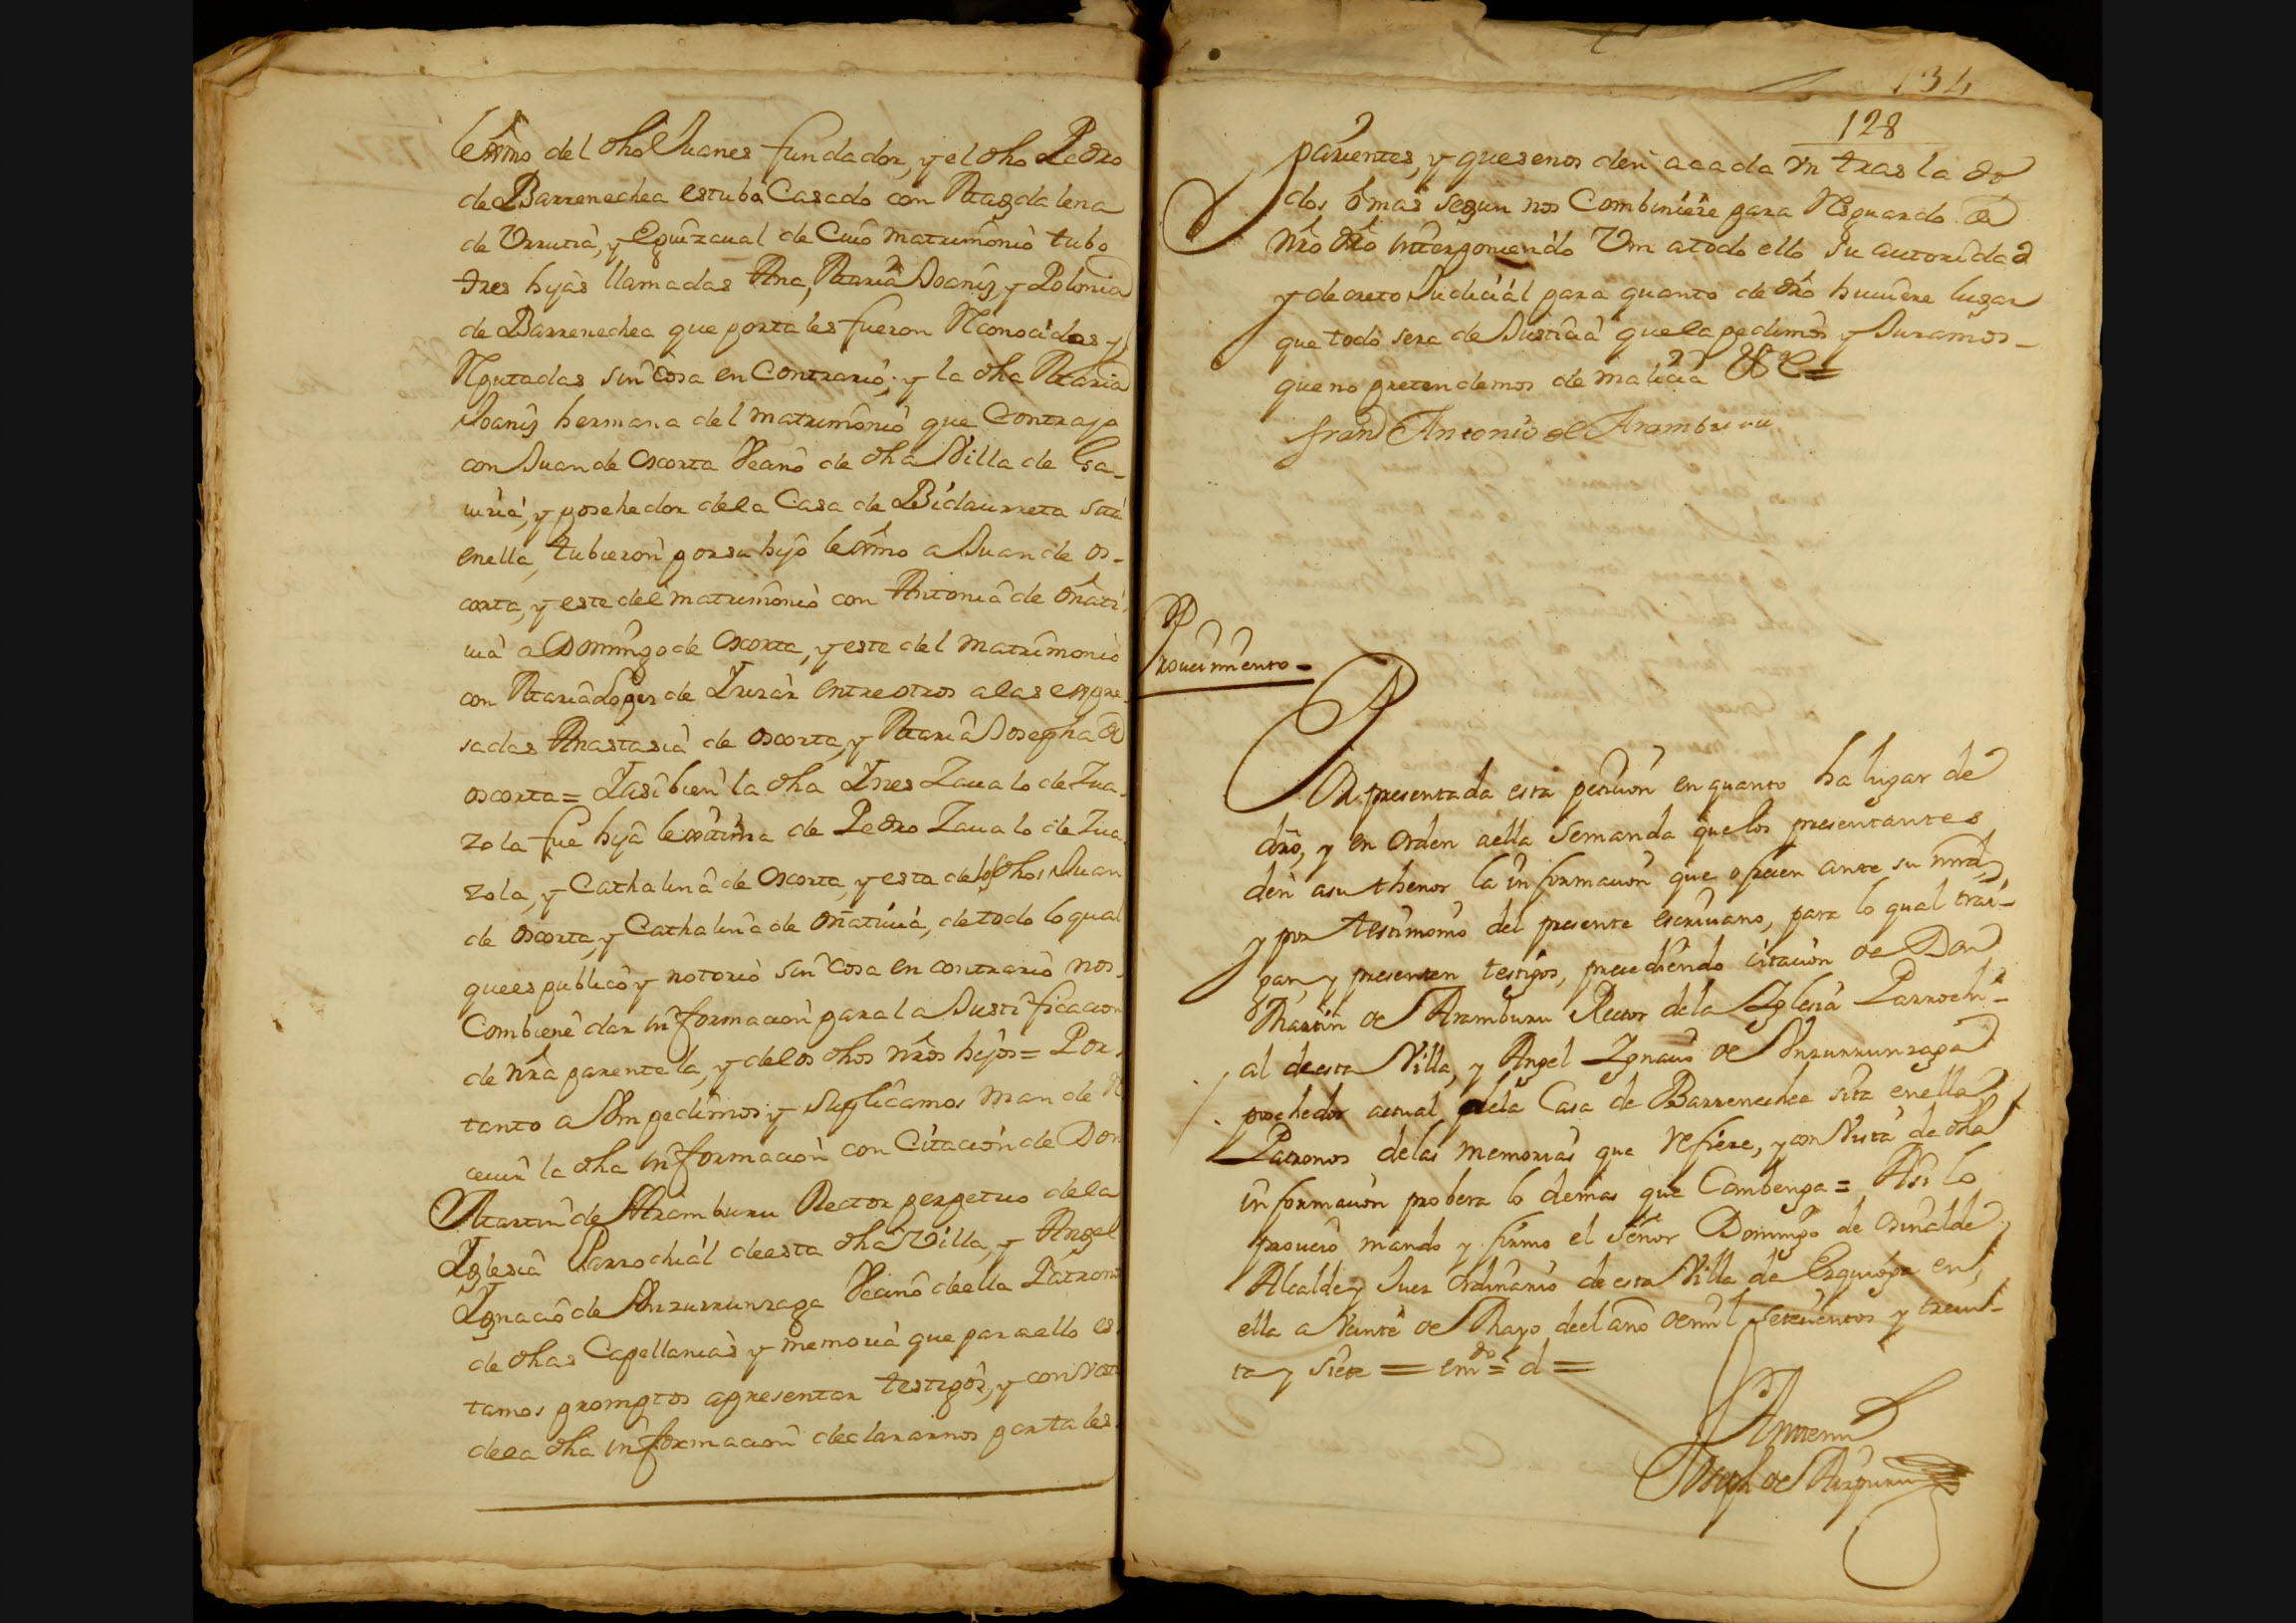 lexmo del dho Juanes fundador, y el dho Pedro
de Barrenechea estubo Casado con Magdalena
de Vrrutia, y Eguizaual de Cuio matrimonio tubo
tres hijas llamadas Ana, Maria Joaniz y Polonia
de Barrenechea que portales fueron Reconocidas y
Reputadas sin cosa en Contrario; y la dha Maria
Joaniz hermana del matrimonio que Contrajo
con Juan de Oscorta Vecino de dha Villa de Ga-
uiria, y posehedor dela Casa de Bidaurreta sita
enella, tubieron por su hijo lexmo a Juan de Os-
corta, y este del matrimonio con Antonia de Oñati-
uia a Domingo de Oscorta, y este del matrimonio
con Maria Lopez de Irizar entre otros a las expre-
sadas Anastasia de Oscorta, y Maria Josepha de
oscorta = Y asi bien la dha Ines Zaualo de Zua-
zola fue hija lexitima de Pedro Zaualo de Zua-
zola, y Cathalina de Oscorta, y esta delos dhos Juan
de Oscorta, y Cathalina de Oñatiuia, de todo lo qual
que es publico y notorio sin cosa en contrario nos
Combiene dar informacion para la Justificacion
de nra parentela, y delos dhos nros hijos = Por
tanto a Vm pedimos y suplicamos mande re
ceuir la dha informacion con Citacion de Don
Martin de Aramburu Rector perpetuo dela
Iglesia Parrochial de esta dha Villa, y Angel
Ignacio de Vnzurrunzaga Vecino de ella Patronos
de dhas Capellanias y memoria que para ello es-
tamos promptos apresentar testigos, y con vista
dela dha informacion declararnos por tales
134
128
parientes, y que se nos den a cada vn traslado
dos o mas segun nos Combiniere para Resguardo de
nro dro interponiendo Vm a todo ello su autoridad
y decreto Judicial para quanto de dro huuiere lugar
que todo sera de Justicia que la pedimos y Juramos
que no pretendemos de malicia &c =
Antonio de Aramburu
Proueimiento -
Por presentada esta peticion en quanto ha lugar de
dro, y en Orden a ella Semanda que los presentantes
den a su thenor la informacion que ofrecen ante su mrd,
y por testimonio del presente escriuano, para lo qual trai-
gan y presenten testigos, precediendo citacion de Don
Martin de Aramburu Rector dela Yglesia Parrochi-
al de esta Villa, y Angel Ygnacio de Vnzurrunzaga
posehedor actual dela Casa de Barrenechea sita enella
Patronos delas memorias que refiere, y con Vista de dha
informacion probera lo demas que Combenga = Asi lo
proueio mando y firmo el señor Domingo de Osinalde
Alcalde y Juez Ordinario de esta Villa de Ezquioga en
ella a Veinte de Mayo de el año de mil setecientos y trein-
ta y siete = emdo = d =
Antemi
Joseph de Aizpuru